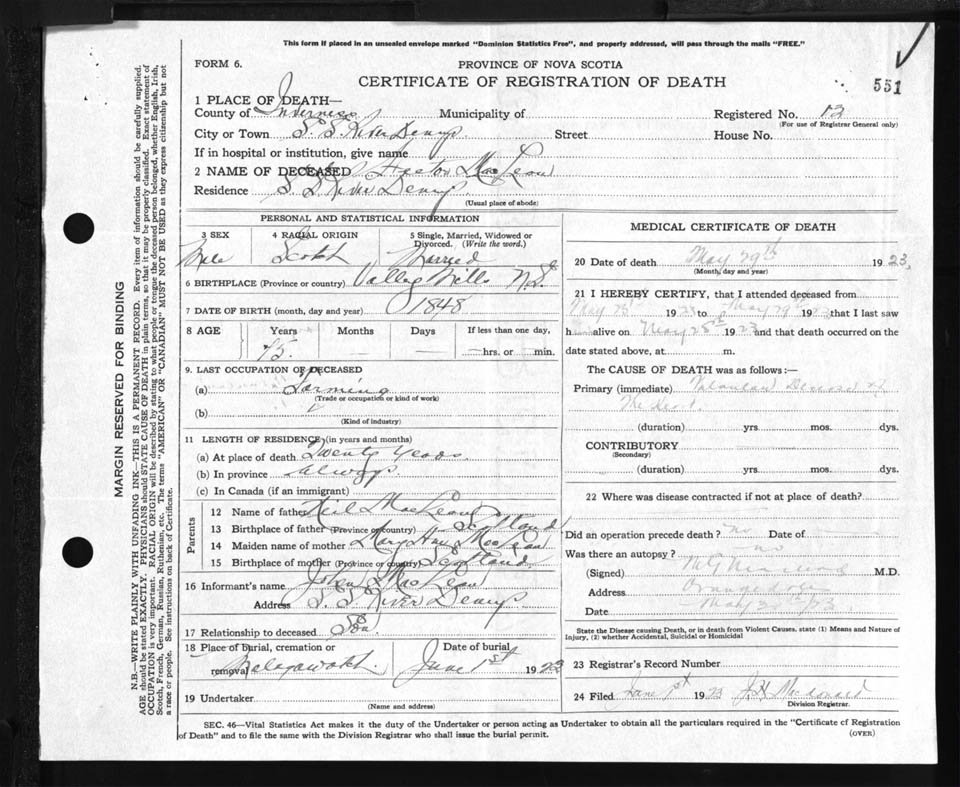 This form if placed in an unsealed envelope marked "Dominion Statistics Free", and properly addressed, will pass through the mails "FREE."
FORM 6.
PROVINCE OF NOVA SCOTIA
CERTIFICATE OF REGISTRATION OF DEATH
551
1 PLACE OF DEATH—
County of Inverness Municipality of Registered No. 12
(For use of Registrar General only)
City or Town S. S. River Denys Street House No.
If in hospital or institution, give name
2 NAME OF DECEASED Hector MacLean
Residence S. S. River Denys
(Usual place of abode)
PERSONAL AND STATISTICAL INFORMATION
3 SEX 4 RACIAL ORIGIN 5 Single, Married, Widowed or Divorced. (Write the word.)
Male Scotch Married
6 BIRTHPLACE (Province or country) Valley Mills N.S.
7 DATE OF BIRTH (month, day and year) 1848
8 AGE Years Months Days If less than one day,
75. — — —hrs. or —min.
9. LAST OCCUPATION OF DECEASED
(a) Farming
(Trade or occupation or kind of work)
(b)
(Kind of industry)
11 LENGTH OF RESIDENCE (in years and months)
(a) At place of death Twenty Years.
(b) In province always.
(c) In Canada (if an immigrant)
Parents
12 Name of father Neil MacLean
13 Birthplace of father (Province or country) Scotland
14 Maiden name of mother Mary Ann MacLean
15 Birthplace of mother (Province or country) Scotland
16 Informant's name John MacLean
Address S. S. River Denys
17 Relationship to deceased Son
18 Place of Burial, cremation or removal Date of burial
Malagawatch. June 1st 1923
19 Undertaker
(Name and address)
MEDICAL CERTIFICATE OF DEATH
20 Date of death May 29th 1923
(Month, day and year)
21 I HEREBY CERTIFY, that I attended deceased from
May 1923 to May 29th 1923 that I last saw
h alive on May 28th 1923 and that death occurred on the
date stated above, at m.
The CAUSE OF DEATH was as follows:—
Primary (immediate) Valvular Disease of
The Heart.
(duration) yrs. mos. dys.
CONTRIBUTORY
(Secondary)
(duration) yrs. mos. dys.
22 Where was disease contracted if not at place of death?
Did an operation precede death? no Date of
Was there an autopsy? no
(Signed) M.D.
Address Orangedale
Date May 23
State the Disease causing Death, or in death from Violent Causes, state (1) Means and Nature of Injury, (2) whether Accidental, Suicidal or Homicidal
23 Registrar's Record Number
24 Filed June 1st 1923 Macdonald
Division Registrar.
SEC. 46—Vital Statistics Act makes it the duty of the Undertaker or person acting as Undertaker to obtain all the particulars required in the "Certificate of Registration
of Death" and to file the same with the Division Registrar who shall issue the burial permit.
(OVER)
MARGIN RESERVED FOR BINDING
N.B.—WRITE PLAINLY WITH UNFADING INK—THIS IS A PERMANENT RECORD. Every item of information should be carefully supplied.
AGE should be stated EXACTLY. PHYSICIANS should STATE CAUSE OF DEATH in plain terms, so that it may be properly classified. Exact statement of
OCCUPATION is very important. RACIAL ORIGIN will be described by stating to what people or tongue the deceased person belonged, whether English, Irish,
Scotch, French, German, Russian, Ruthenian, etc. The terms "AMERICAN" OR "CANADIAN" MUST NOT BE USED as they express citizenship but not
a race or people. See instructions on back of Certificate.